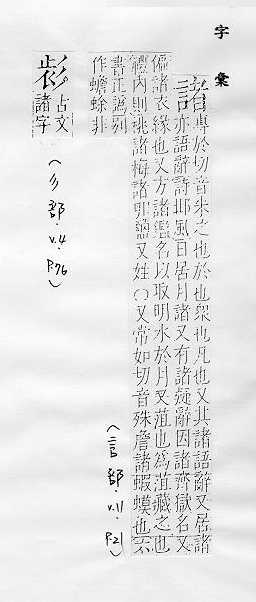 字彙
諸
專於切音朱之也於也眾也凡也又其諸語辭又居諸
亦語辭詩邶風日居月諸又有諸疑辭因諸齊獄名又
偏諸衣緣也又方諸鑑名以取明水於月又菹也為菹藏之也
禮內則桃諸梅諸卵鹽又姓○又常如切音殊詹諸蝦蟆也六
書正譌別
作蟾蜍非
(言部.v.11 P.21)
古文
諸字
(彡部.v.4 P.76)